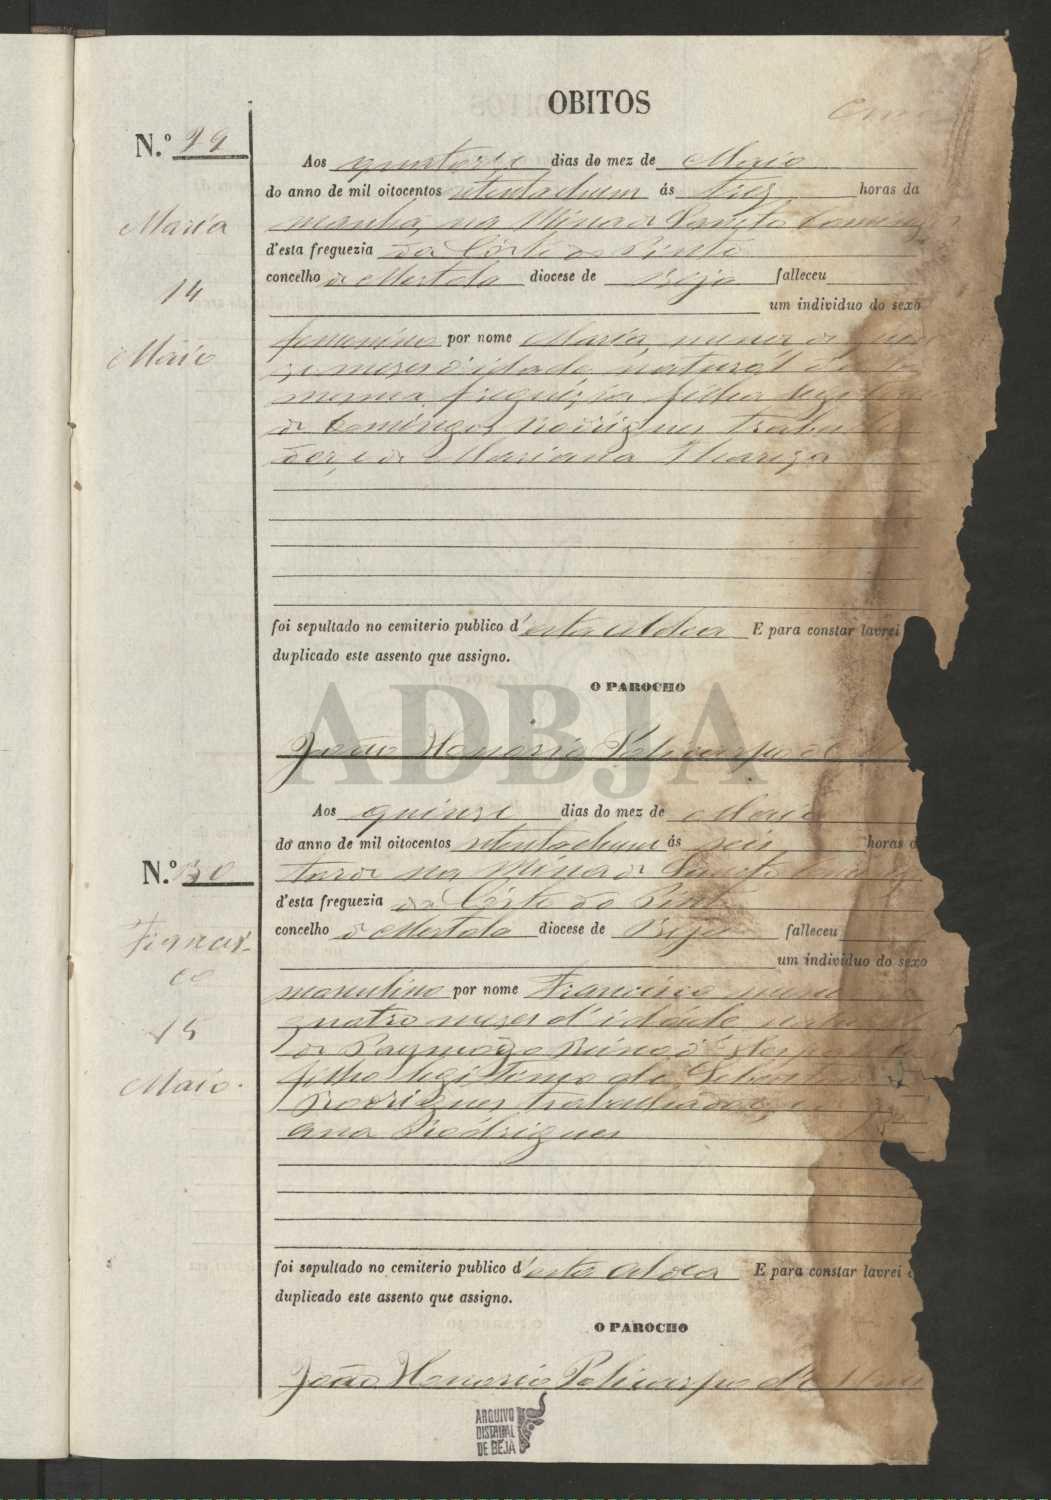 OBITOS
N.º 29
Aos quatorze dias do mez de Maio
do anno de mil oitocentos oitenta e um ás tres horas da
Maria
manhã, na Mina de Sancto Domingos
d'esta freguezia da Côrte do Pinto
14
concelho de Mertola diocese de Beja falleceu
um individuo do sexo
Maio
femenino por nome Maria, menor de
mezes d'idade natural d'esta
mesma freguezia filha legitima
de Domingos Rodrigues trabalha
dor, e de Mariana
foi sepultado no cemiterio publico d'esta aldea E para constar lavrei
duplicado este assento que assigno.
O PAROCHO
ADBJA
João Honorio Policarpo de
Aos quinze dias do mez de Maio
do anno de mil oitocentos oitenta e um ás seis horas
N.º 30
tarde na Mina de Sancto
d'esta freguezia da Côrte do Pinto
Francis-
co
concelho de Mertola diocese de Beja falleceu
um individuo do sexo
masculino por nome Francisco menor
15
quatro mezes d'idade
de Paymogo Reino d'
Maio.
filho legitimo de
Rodrigues trabalhador, e
Anna Rodrigues
foi sepultado no cemiterio publico d'esta aldea E para constar lavrei
duplicado este assento que assigno.
O PAROCHO
João Honorio Policarpo de
ARQUIVO
DISTRITAL
DE BEJA